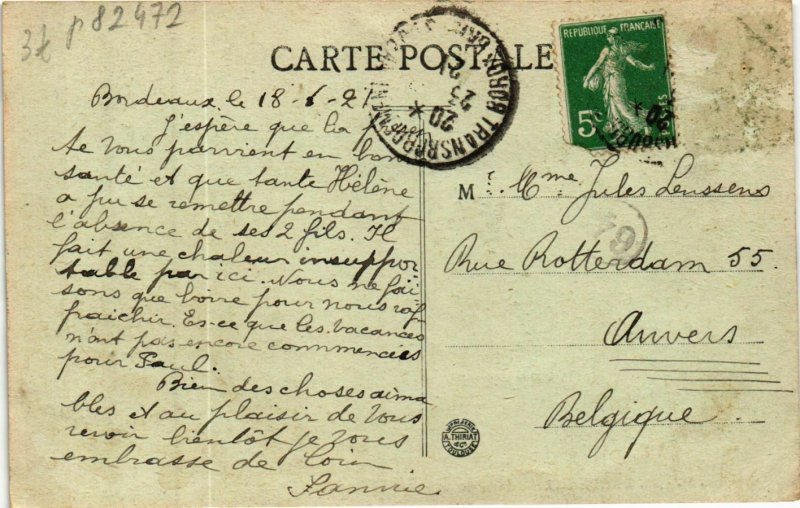 3f p82472
CARTE POSTALE
REPUBLIQUE FRANÇAISE
5c
POSTES
BORDX TRANSBORDEMENT
20
23
21
Bordeaux, le 18-6-21
J'espère que la
te vous parvient en bon
santé et que tante Hélène
a pu se remettre pendant
l'absence de ses 2 fils. Il
fait une chaleur insuppor
table par ici. Nous ne fai
sons que boire pour nous raf
fraichir. Es-ce que les vacances
n'ont pas encore commencées
pour Paul.
Bien des choses aima
bles et au plaisir de vous
revoir bientôt je vous
embrasse de loin
Fannie
M Mme Jules Lenssens
Rue Rotterdam 55.
Anvers
Belgique
79
A. THIRIAT
& Cie
TOULOUSE